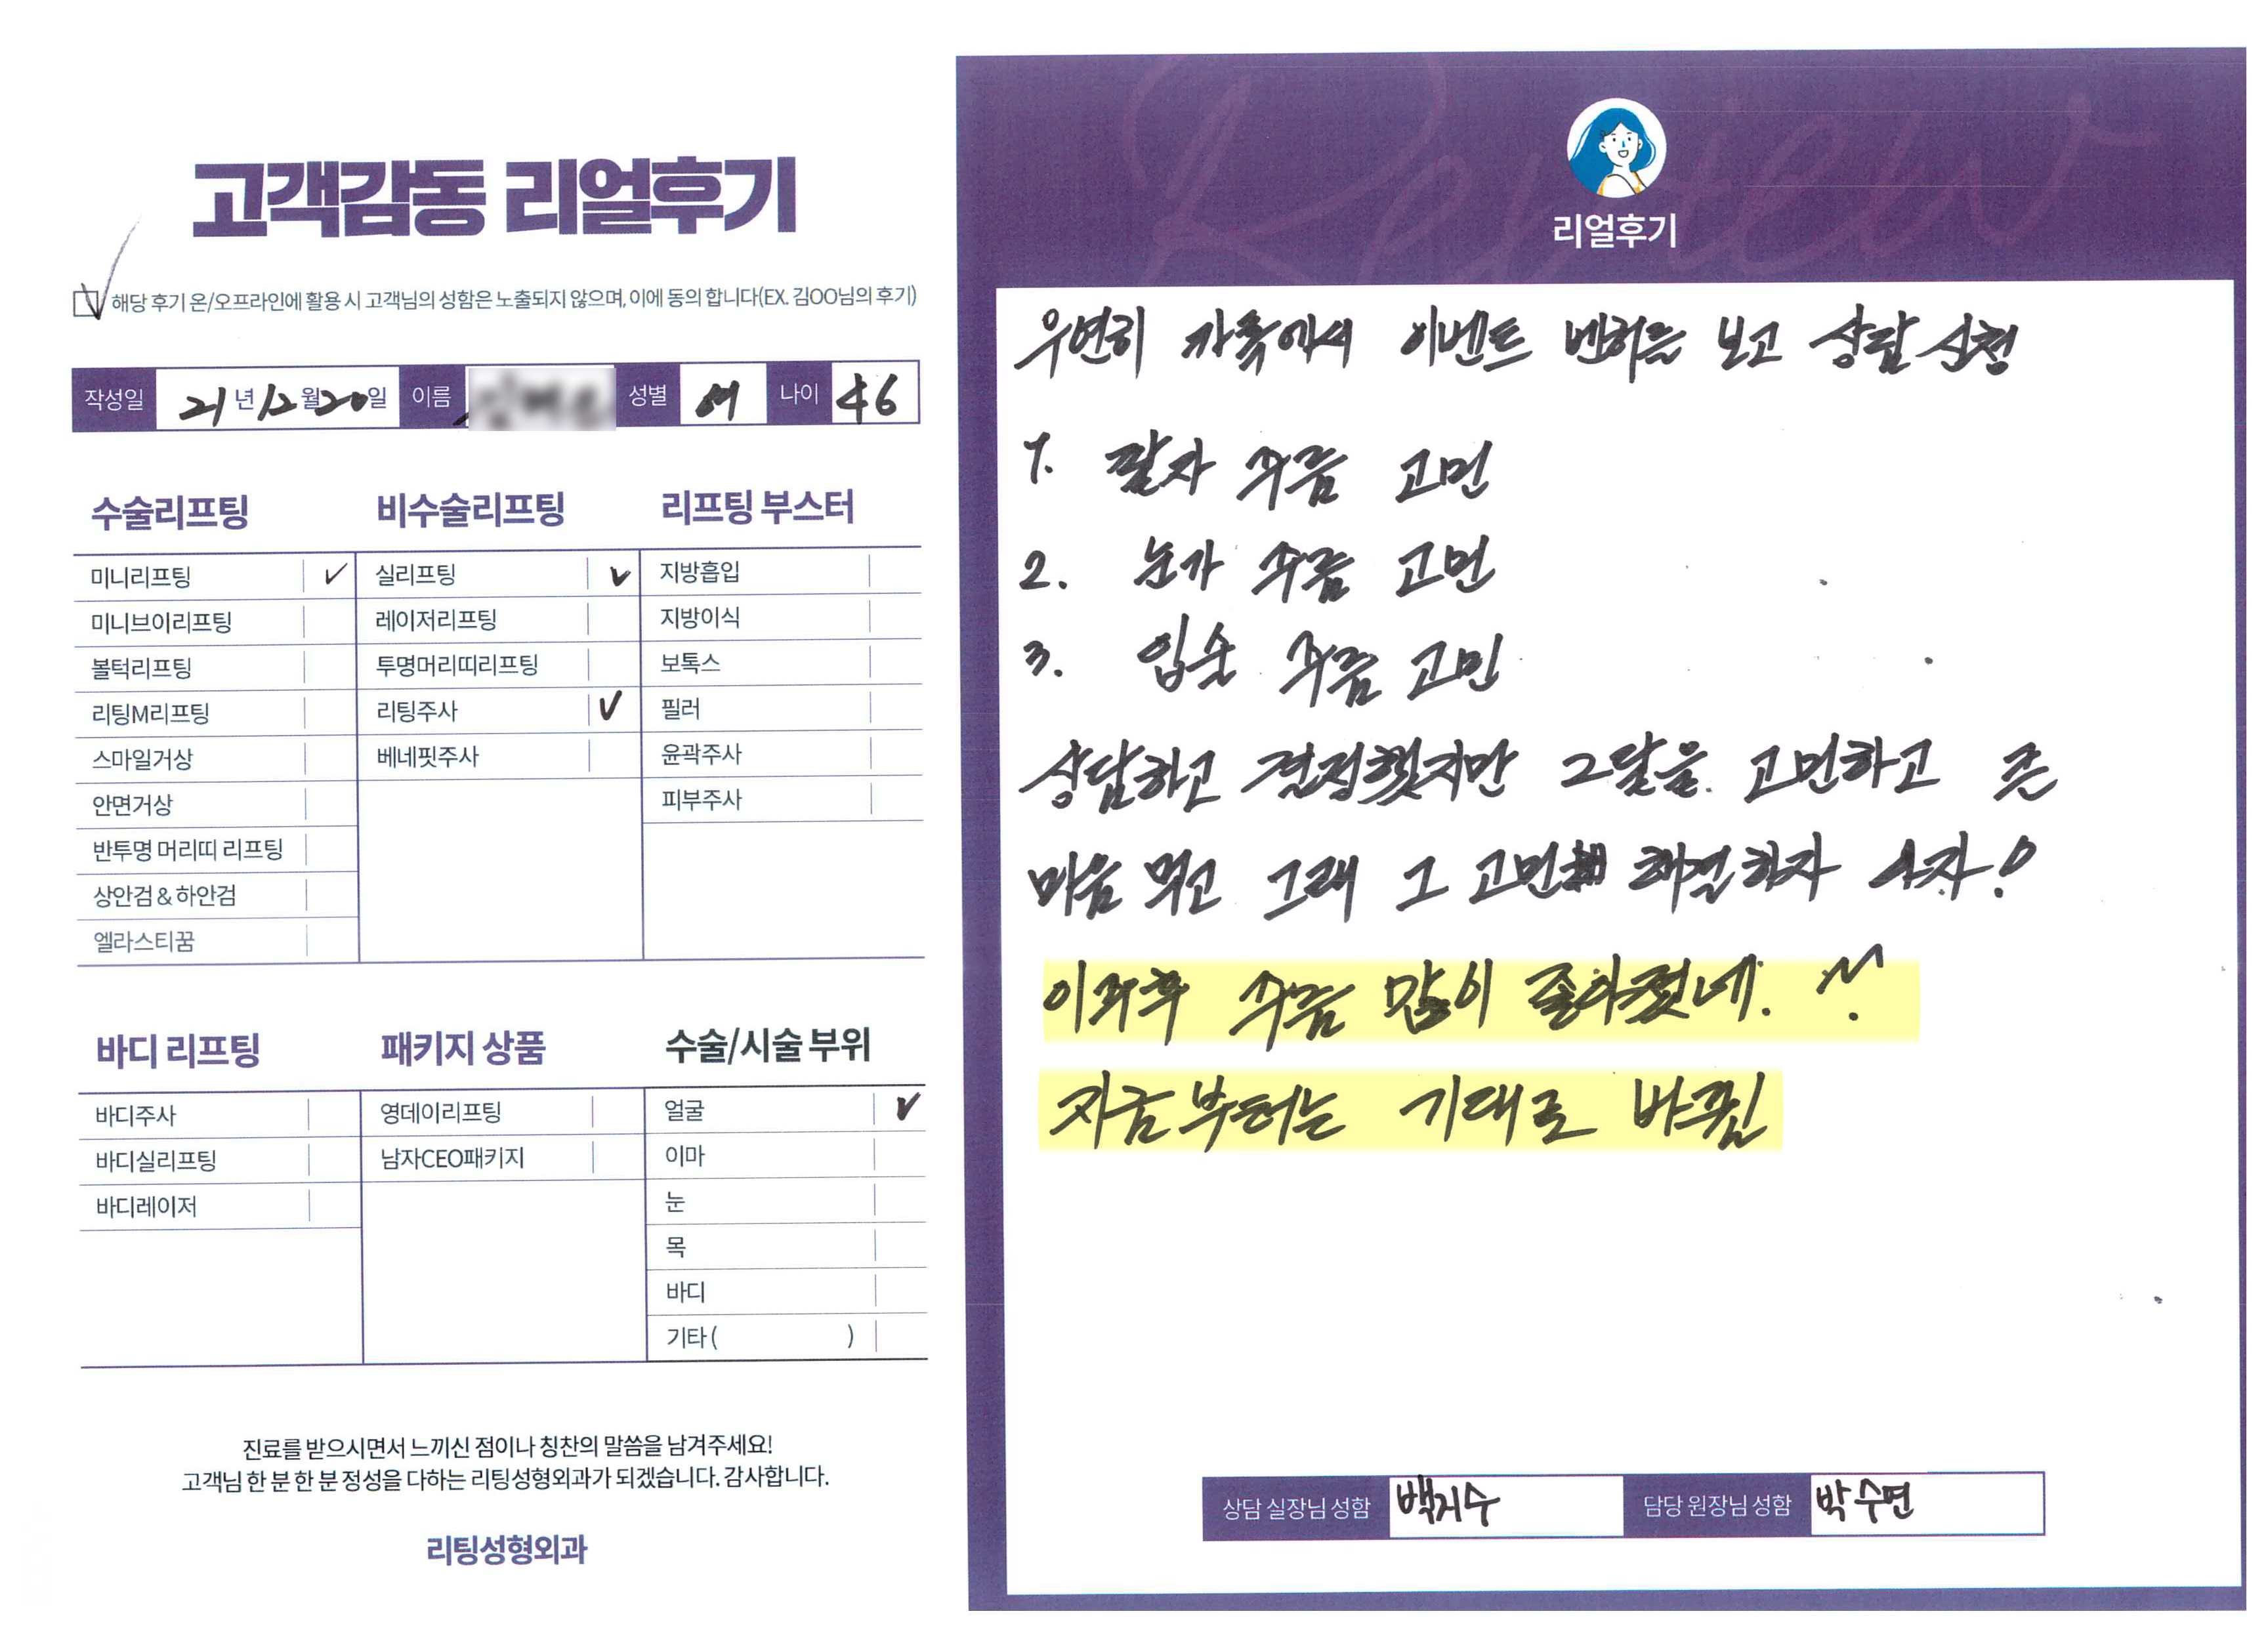 고객감동 리얼후기
해당 후기 온/오프라인에 활용 시 고객님의 성함은 노출되지 않으며, 이에 동의 합니다(EX. 김OO님의 후기)
작성일 21년 12월 20일 이름 성별 여 나이 46
수술리프팅
미니리프팅 ✓
미니브이리프팅
볼턱리프팅
리팅M리프팅
스마일거상
안면거상
반투명 머리띠 리프팅
상안검 & 하안검
엘라스티꿈
비수술리프팅
실리프팅 ✓
레이저리프팅
투명머리띠리프팅
리팅주사 ✓
베네핏주사
리프팅 부스터
지방흡입
지방이식
보톡스
필러
윤곽주사
피부주사
바디 리프팅
바디주사
바디실리프팅
바디레이저
패키지 상품
영데이리프팅
남자CEO패키지
수술/시술 부위
얼굴 ✓
이마
눈
목
바디
기타 ( )
진료를 받으시면서 느끼신 점이나 칭찬의 말씀을 남겨주세요!
고객님 한 분 한 분 정성을 다하는 리팅성형외과가 되겠습니다. 감사합니다.
리팅성형외과
Review
리얼후기
우연히 카톡에서 이벤트 벤허를 보고 상담 신청
1. 팔자 주름 고민
2. 눈가 주름 고민
3. 입술 주름 고민
상담하고 결정했지만 그달을 고민하고 큰
마음 먹고 그래 그 고민 해결하자 사자!
이주후 주름 많이 좋아졌네.
지금부터는 기대로 바뀜
상담 실장님 성함 백지수 담당 원장님 성함 박수연